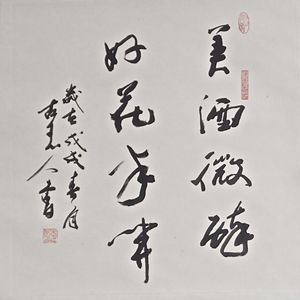 美酒微醉
好花半開
歲在戊戌春月
人書